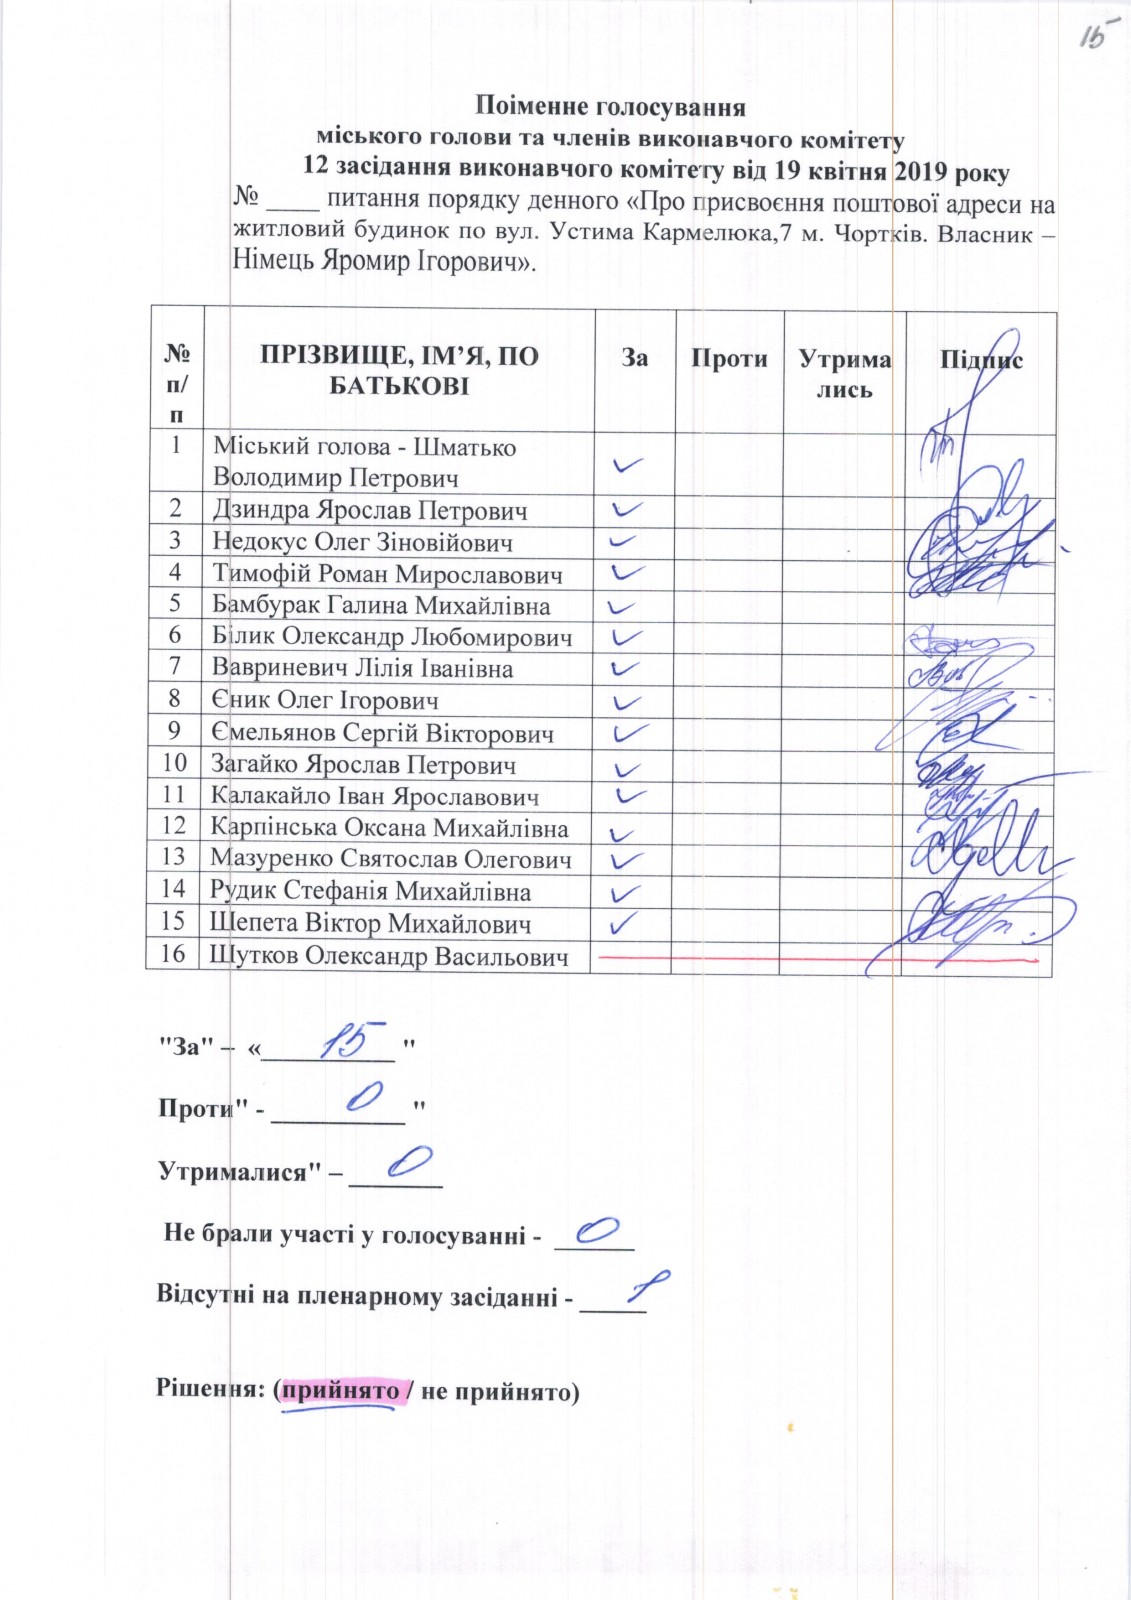 15
Поіменне голосування
міського голови та членів виконавчого комітету
12 засідання виконавчого комітету від 19 квітня 2019 року
№ ____ питання порядку денного «Про присвоєння поштової адреси на
житловий будинок по вул. Устима Кармелюка,7 м. Чортків. Власник –
Німець Яромир Ігорович».
№ п/п ПРІЗВИЩЕ, ІМ’Я, ПО БАТЬКОВІ За Проти Утрима лись Підпис
1 Міський голова - Шматько
Володимир Петрович ✓
2 Дзиндра Ярослав Петрович ✓
3 Недокус Олег Зіновійович ✓
4 Тимофій Роман Мирославович ✓
5 Бамбурак Галина Михайлівна ✓
6 Білик Олександр Любомирович ✓
7 Вавриневич Лілія Іванівна ✓
8 Єник Олег Ігорович ✓
9 Ємельянов Сергій Вікторович ✓
10 Загайко Ярослав Петрович ✓
11 Калакайло Іван Ярославович ✓
12 Карпінська Оксана Михайлівна ✓
13 Мазуренко Святослав Олегович ✓
14 Рудик Стефанія Михайлівна ✓
15 Шепета Віктор Михайлович ✓
16 Шутков Олександр Васильович
"За" – «15"
Проти" - 0"
Утрималися" – 0
Не брали участі у голосуванні - 0
Відсутні на пленарному засіданні - 1
Рішення: (прийнято / не прийнято)